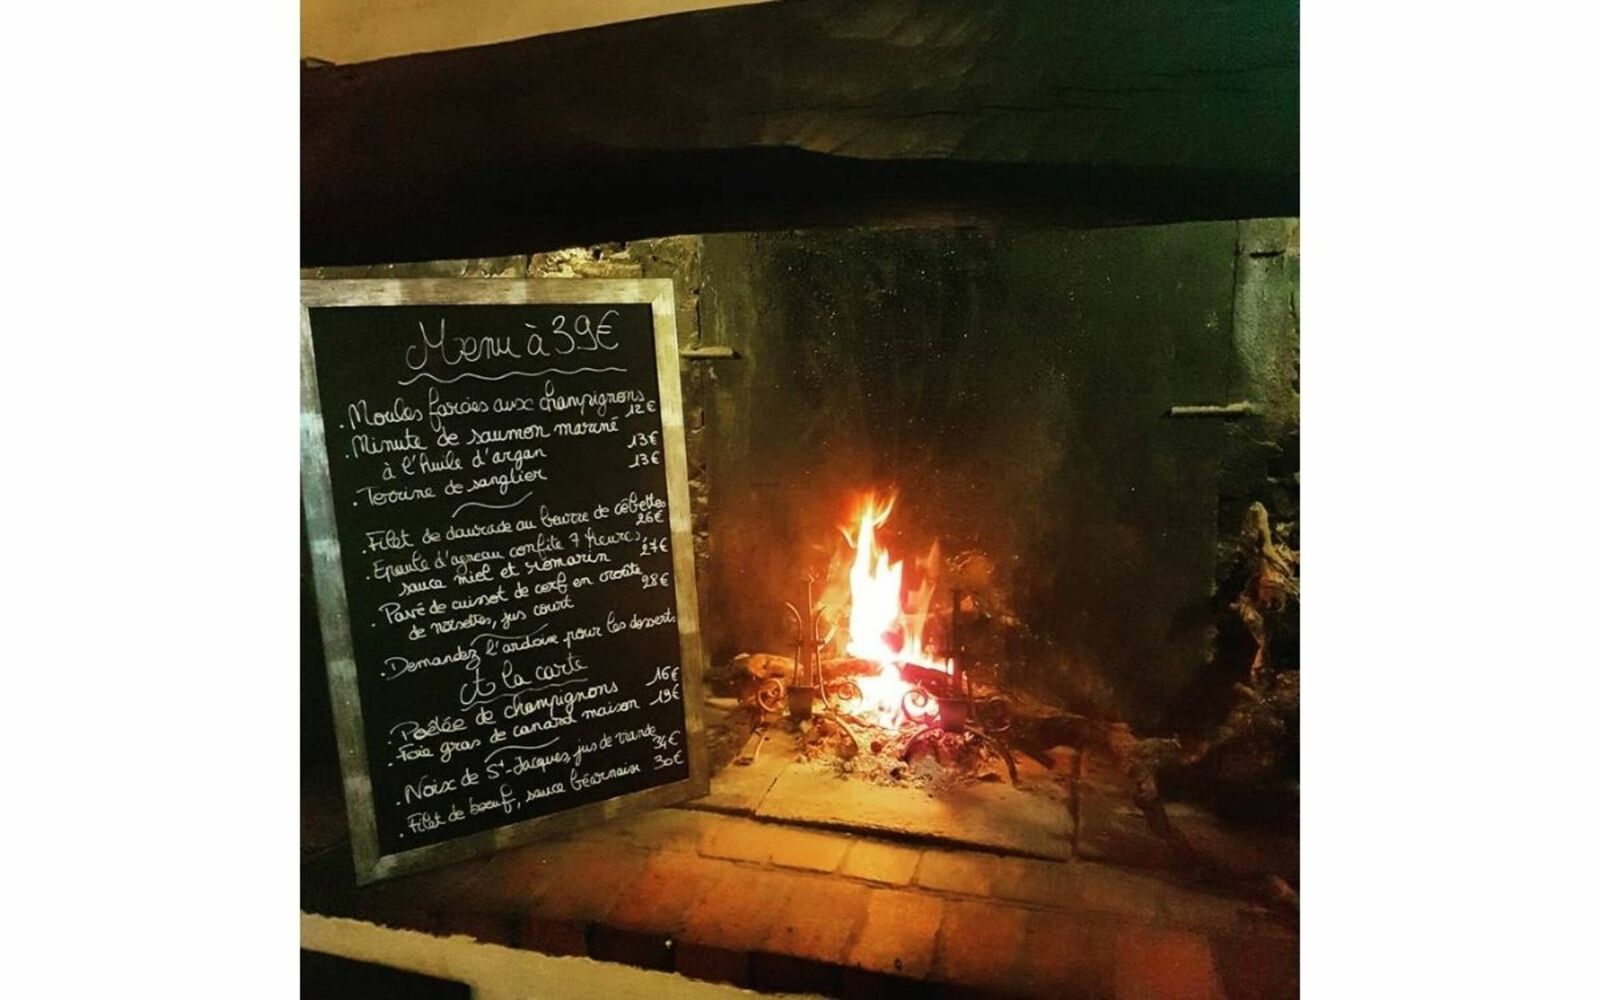 Menu à 39€
. Moules farcies aux champignons 12€
. Minute de saumon mariné
à l'huile d'argan 13€
. Terrine de sanglier 13€
. Filet de daurade au beurre de cébettes 26€
. Epaule d'agneau confite 7 heures,
sauce miel et romarin 27€
. Pavé de cuissot de cerf en croûte 28€
de noisettes, jus court
. Demandez l'ardoise pour les desserts
A la carte
. Poêlée de champignons 16€
. Foie gras de canard maison 19€
. Noix de St-Jacques, jus de viande 34€
. Filet de bœuf, sauce béarnaise 30€